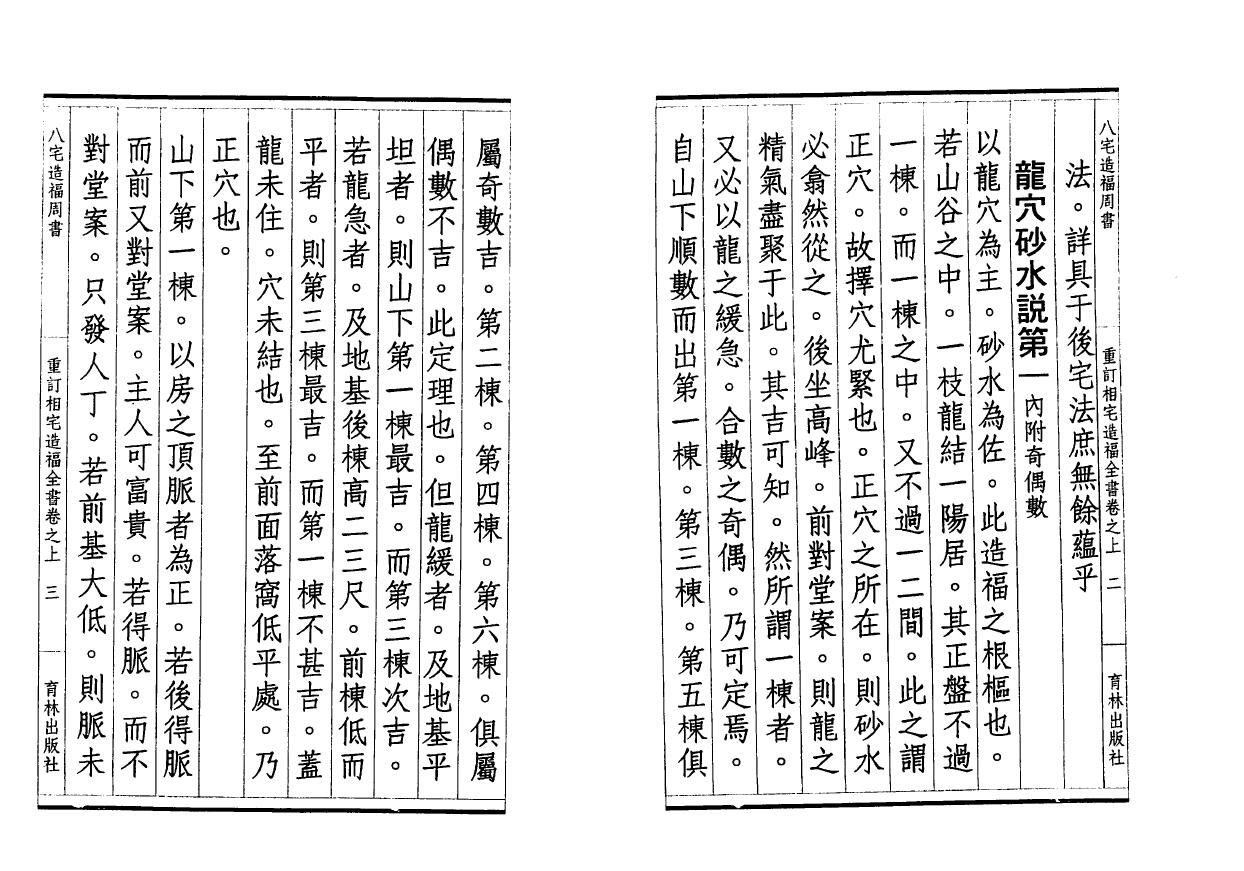 八宅造福周書　重訂相宅造福全書卷之上　二　育林出版社
法。詳具于後宅法庶無餘蘊乎
龍穴砂水説第一　內附奇偶數
以龍穴為主。砂水為佐。此造福之根樞也。
若山谷之中。一枝龍結一陽居。其正盤不過
一棟。而一棟之中。又不過一二間。此之謂
正穴。故擇穴尤緊也。正穴之所在。則砂水
必翕然從之。後坐高峰。前對堂案。則龍之
精氣盡聚于此。其吉可知。然所謂一棟者。
又必以龍之緩急。合數之奇偶。乃可定焉。
自山下順數而出第一棟。第三棟。第五棟俱
屬奇數吉。第二棟。第四棟。第六棟。俱屬
偶數不吉。此定理也。但龍緩者。及地基平
坦者。則山下第一棟最吉。而第三棟次吉。
若龍急者。及地基後棟高二三尺。前棟低而
平者。則第三棟最吉。而第一棟不甚吉。蓋
龍未住。穴未結也。至前面落窩低平處。乃
正穴也。
山下第一棟。以房之頂脈者為正。若後得脈
而前又對堂案。主人可富貴。若得脈。而不
對堂案。只發人丁。若前基大低。則脈未
八宅造福周書　重訂相宅造福全書卷之上　三　育林出版社